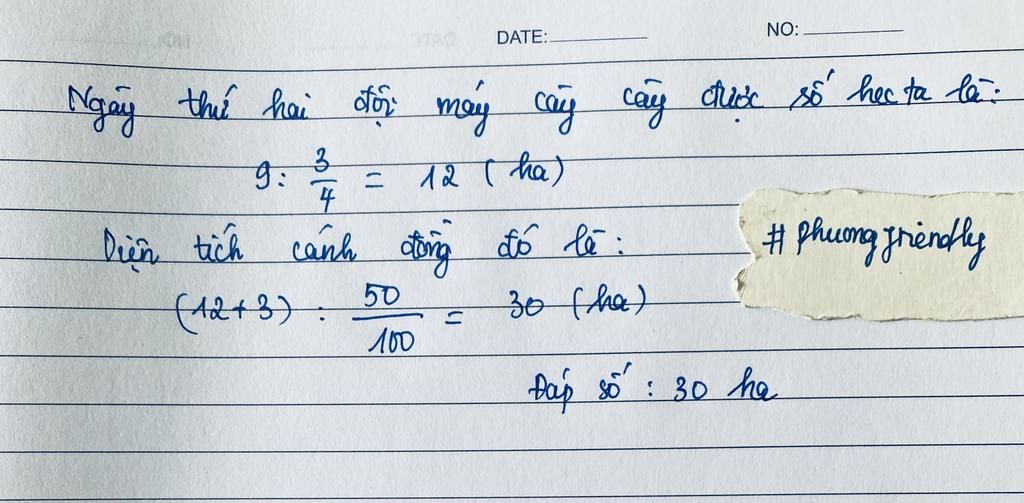 DATE: NO:
Ngày thứ hai đội máy cày cày được số hec ta là:
9 : 3/4 = 12 (ha)
Diện tích cánh đồng đó là:
# phuongfriendly
(12+3) : 50/100 = 30 (ha)
Đáp số : 30 ha